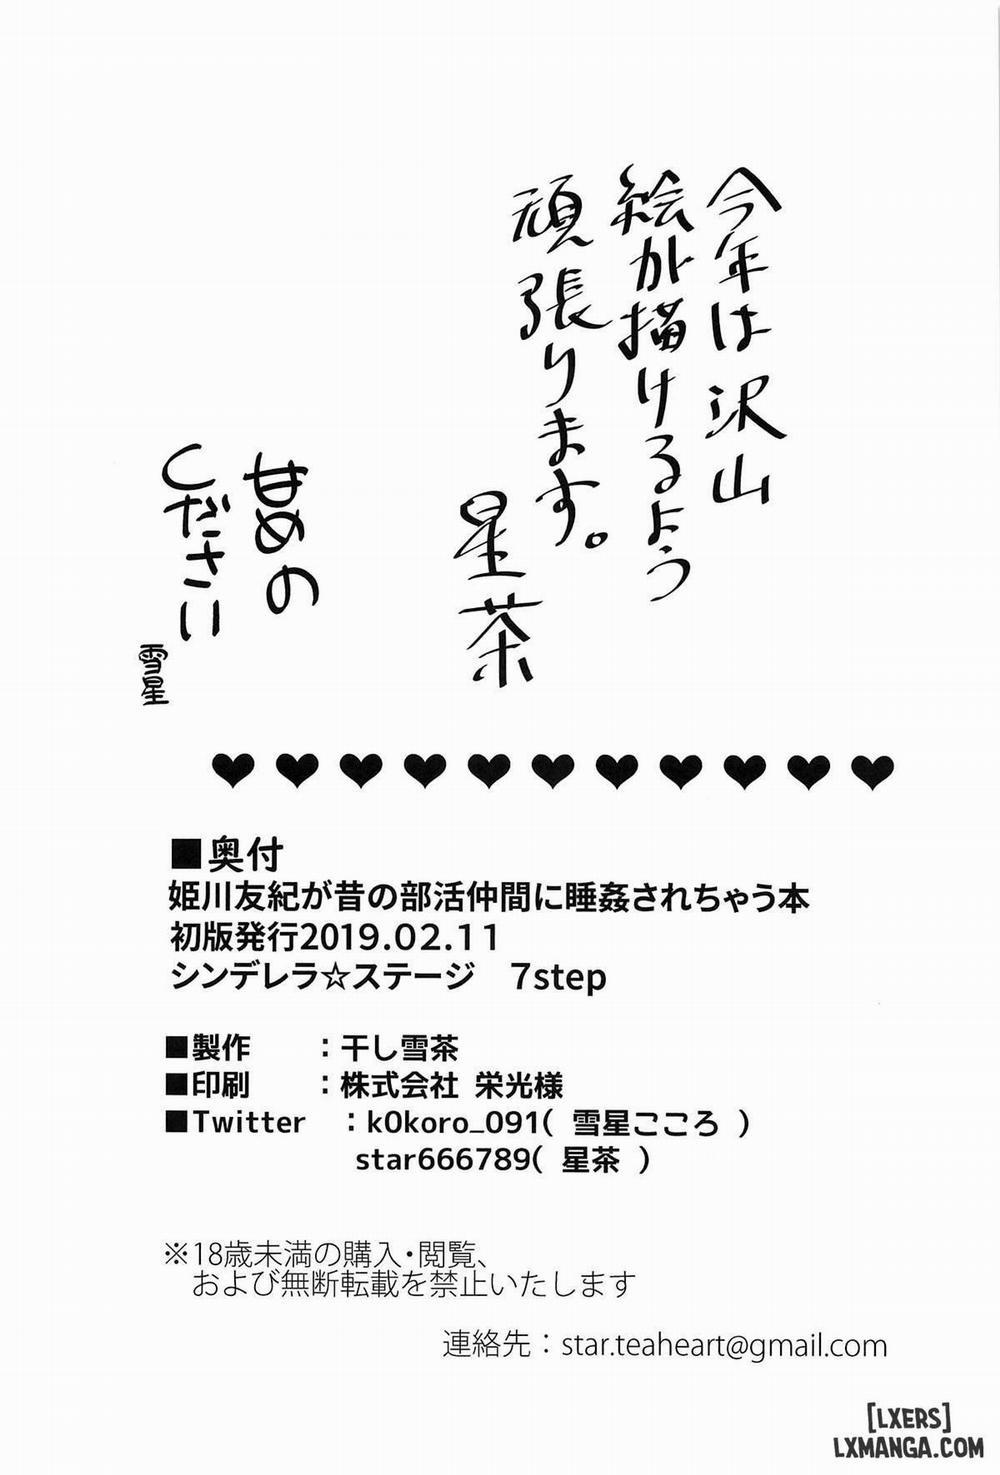 今年は沢山
絵が描けるよう
頑張ります。
星茶
甘めの
しださい
雪星
■奥付
姫川友紀が昔の部活仲間に睡姦されちゃう本
初版発行2019.02.11
シンデレラ☆ステージ　7step
■製作　　：干し雪茶
■印刷　　：株式会社 栄光様
■Twitter　：k0koro_091( 雪星こころ )
star666789( 星茶 )
※18歳未満の購入・閲覧、
および無断転載を禁止いたします
連絡先：star.teaheart@gmail.com
[LXERS]
LXMANGA.COM